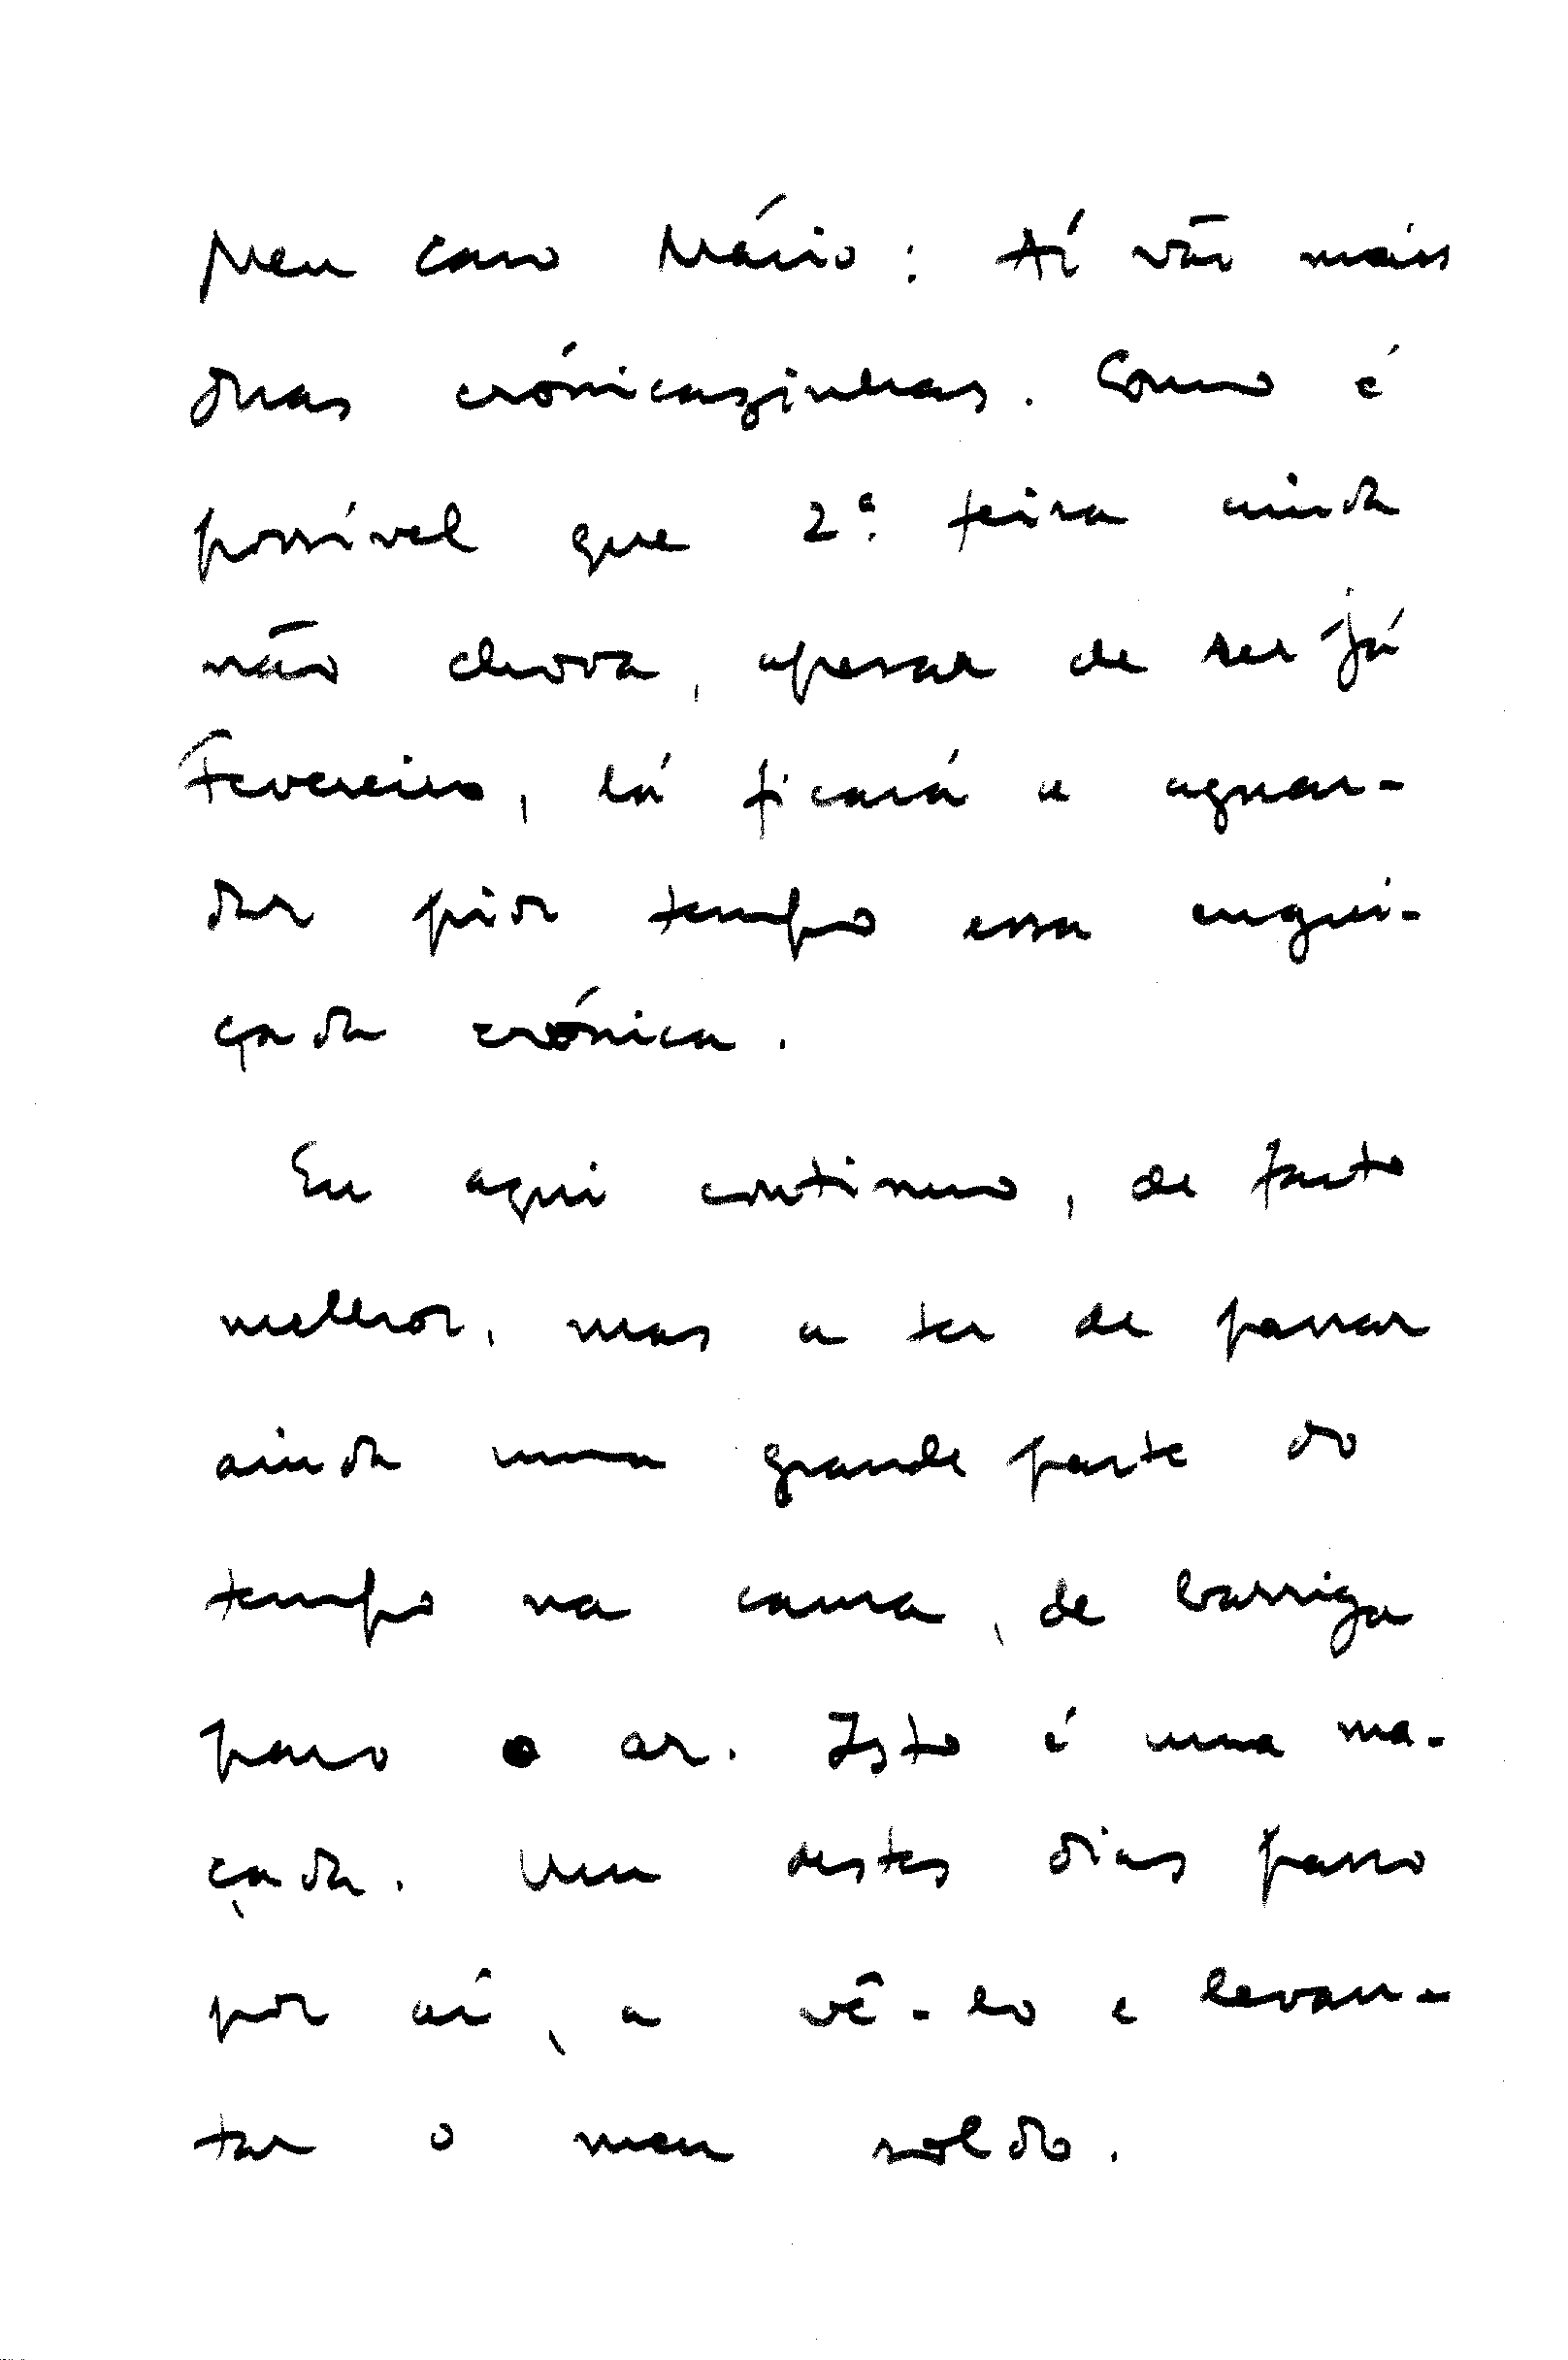 Meu caro Mário: Aí vão mais
duas crónicazinhas. Como é
possível que 2ª. feira ainda
não chova, apesar de ser já
Fevereiro, lá ficará a aguar-
dar pior tempo essa engui-
çada crónica.
Eu aqui continuo, de facto
melhor, mas a ter de passar
ainda uma grande parte do
tempo na cama, de barriga
para o ar. Isto é uma ma-
çada. Um destes dias passo
por aí, a vê-lo e levan-
tar o meu soldo.